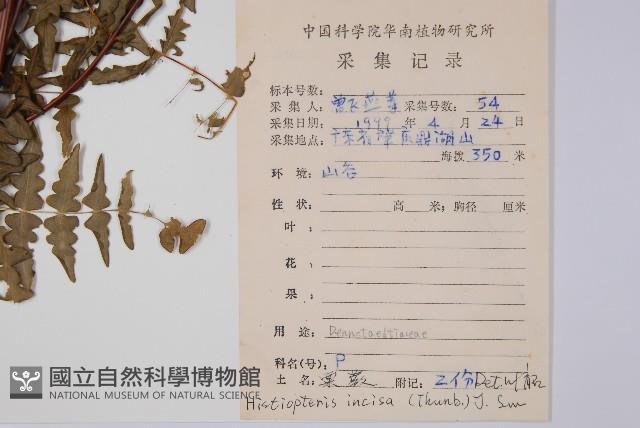 中国科学院华南植物研究所
采集记录
标本号数:
采集人: 曾飞燕等 采集号数: 54
采集日期: 1999 年 4 月 24 日
采集地点: 广东省肇庆鼎湖山
海拨 350 米
环境: 山谷
性状: 高 米; 胸径 厘米
叶:
花:
果:
用途: Dennstaedtiaceae
科名(号): P
土名: 栗蕨 附记: 二份 Det.
Histiopteris incisa (Thunb.) J. Sm
國立自然科學博物館
NATIONAL MUSEUM OF NATURAL SCIENCE